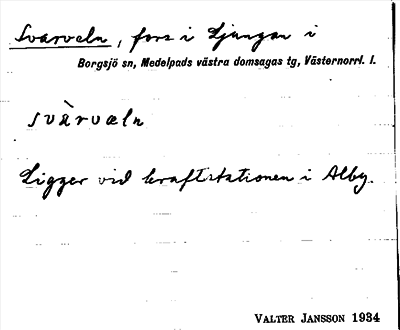 Svarveln, fors i Ljungan i
Borgsjö sn, Medelpads västra domsagas tg, Västernorrl. l.
svàrvæln
Ligger vid kraftstationen i Alby.
VALTER JANSSON 1934